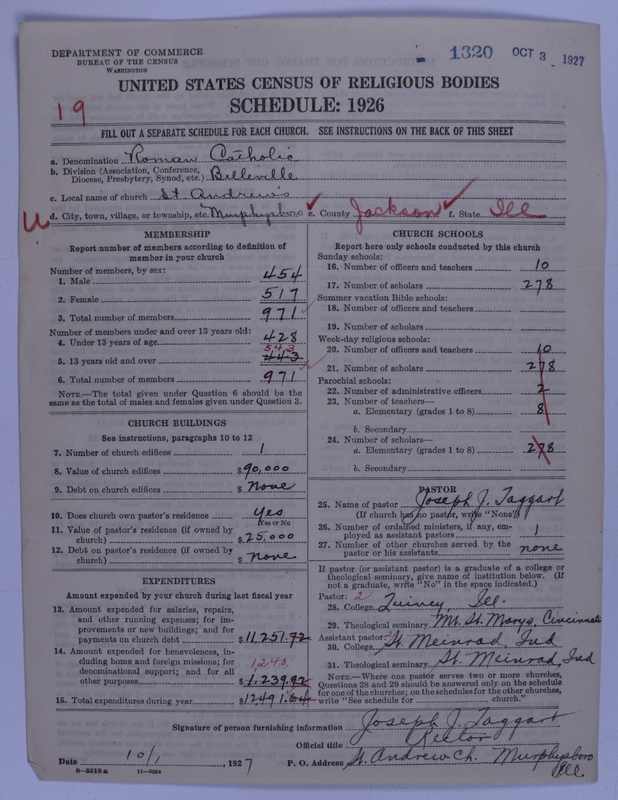 DEPARTMENT OF COMMERCE
BUREAU OF THE CENSUS
WASHINGTON
1320 OCT 3 1927
UNITED STATES CENSUS OF RELIGIOUS BODIES
SCHEDULE: 1926
19
FILL OUT A SEPARATE SCHEDULE FOR EACH CHURCH. SEE INSTRUCTIONS ON THE BACK OF THIS SHEET
a. Denomination Roman Catholic
b. Division (Association, Conference, Diocese, Presbytery, Synod, etc.) Belleville
c. Local name of church St. Andrew's
d. City, town, village, or township, etc. Murphysboro e. County Jackson f. State Ill
MEMBERSHIP
Report number of members according to definition of
member in your church
Number of members, by sex:
1. Male 454
2. Female 517
3. Total number of members 971
Number of members under and over 13 years old:
4. Under 13 years of age 428
543
5. 13 years old and over 443
6. Total number of members 971
NOTE.—The total given under Question 6 should be
same as the total of males and females given under Question 3.
CHURCH BUILDINGS
See instructions, paragraphs 10 to 12
7. Number of church edifices 1
8. Value of church edifices $90,000
9. Debt on church edifices $ None
10. Does church own pastor's residence? Yes
Yes or No
11. Value of pastor's residence (if owned by
church) $25,000
12. Debt on pastor's residence (if owned by
church) $ None
EXPENDITURES
Amount expended by your church during last fiscal year
13. Amount expended for salaries, repairs,
and other running expenses; for im-
provements or new buildings; and for
payments on church debt $11,251.72
14. Amount expended for benevolences, in-
cluding home and foreign missions; for 1,240.
denominational support; and for all
other purposes $1,239.92
15. Total expenditures during year $12491.64
CHURCH SCHOOLS
Report here only schools conducted by this church
Sunday schools:
16. Number of officers and teachers 10
17. Number of scholars 278
Summer vacation Bible schools:
18. Number of officers and teachers
19. Number of scholars
Week-day religious schools:
20. Number of officers and teachers 10
21. Number of scholars 278
Parochial schools:
22. Number of administrative officers 2
23. Number of teachers—
a. Elementary (grades 1 to 8) 8
b. Secondary
24. Number of scholars—
a. Elementary (grades 1 to 8) 278
b. Secondary
PASTOR
25. Name of pastor Joseph J. Taggart
(If church has no pastor, write "None")
26. Number of ordained ministers, if any, em-
ployed as assistant pastors 1
27. Number of other churches served by the
pastor or his assistants none
If pastor (or assistant pastor) is a graduate of a college or
theological seminary, give name of institution below. (If
not a graduate, write "No" in the space indicated.)
Pastor: 2
28. College Quincy, Ill.
29. Theological seminary Mt. St. Marys, Cincinnati
Assistant pastor:
30. College St Meinrad, Ind
31. Theological seminary St. Meinrad, Ind
NOTE.—Where one pastor serves two or more churches,
Questions 28 and 29 should be answered only on the schedule
for one of the churches; on the schedules for the other churches,
write "See schedule for church."
Signature of person furnishing information Joseph J. Taggart
Official title Rector
Date 10/1, 1927 P. O. Address St. Andrew Ch. Murphysboro
Ill.
8-5518a 11-9054